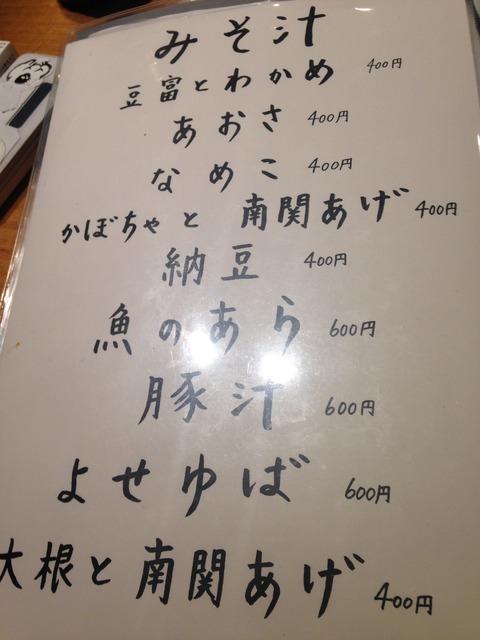 みそ汁
豆富とわかめ 400円
あおさ 400円
なめこ 400円
かぼちゃと 南関あげ 400円
納豆 400円
魚のあら 600円
豚汁 600円
よせゆば 600円
大根と南関あげ 400円